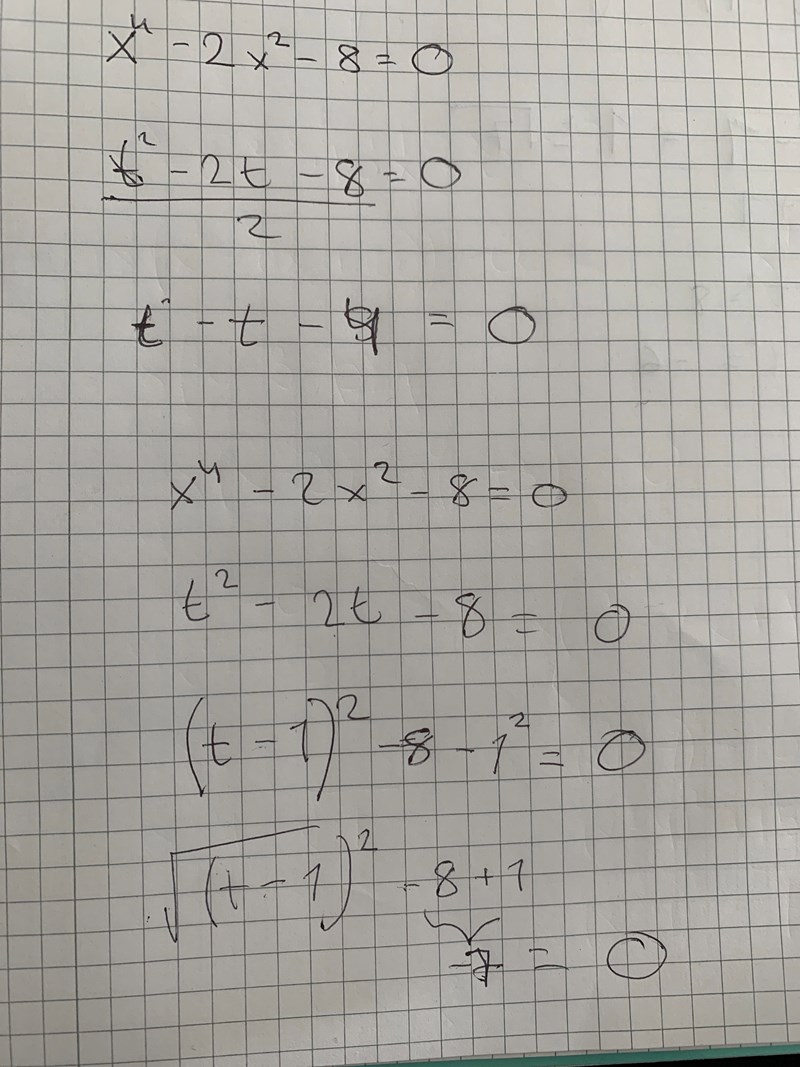 x⁴ - 2x² - 8 = 0
t² - 2t - 8 = 0
2
t - t - = 0
x⁴ - 2x² - 8 = 0
t² - 2t - 8 = 0
(t - 1)² - 8 - 1² = 0
√(t - 1)² - 8 + 1
-7 = 0